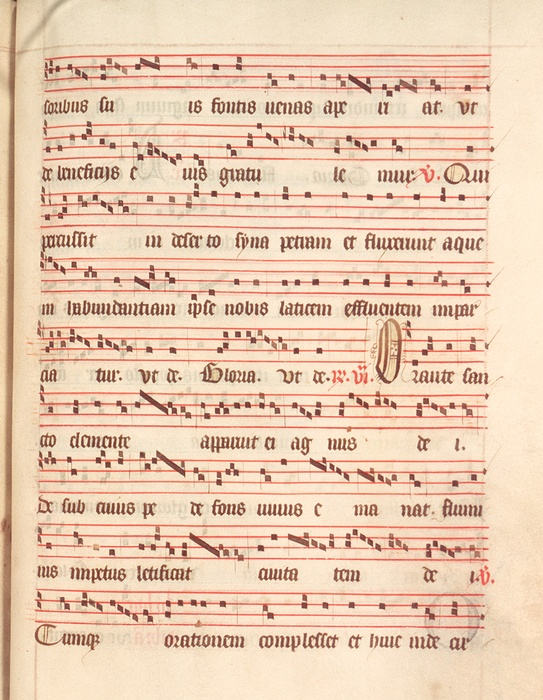 soribus su is fontis uenas ape ri at. vt
de beneficijs e ius gratu le mur. v. Qui
percussit in deserto syna petram et fluxerunt aque
in habundantiam ipse nobis laticem effluentem impar
cia tur. vt de. Gloria. vt de. R. vi. Orante san
cto clemente apparuit ei ag nus de i.
De sub cuius pe de fons uiuus e ma nat. flumi
nis impetus letificat ciuita tem de i. v.
Cumq orationem complesset et huic inde cir